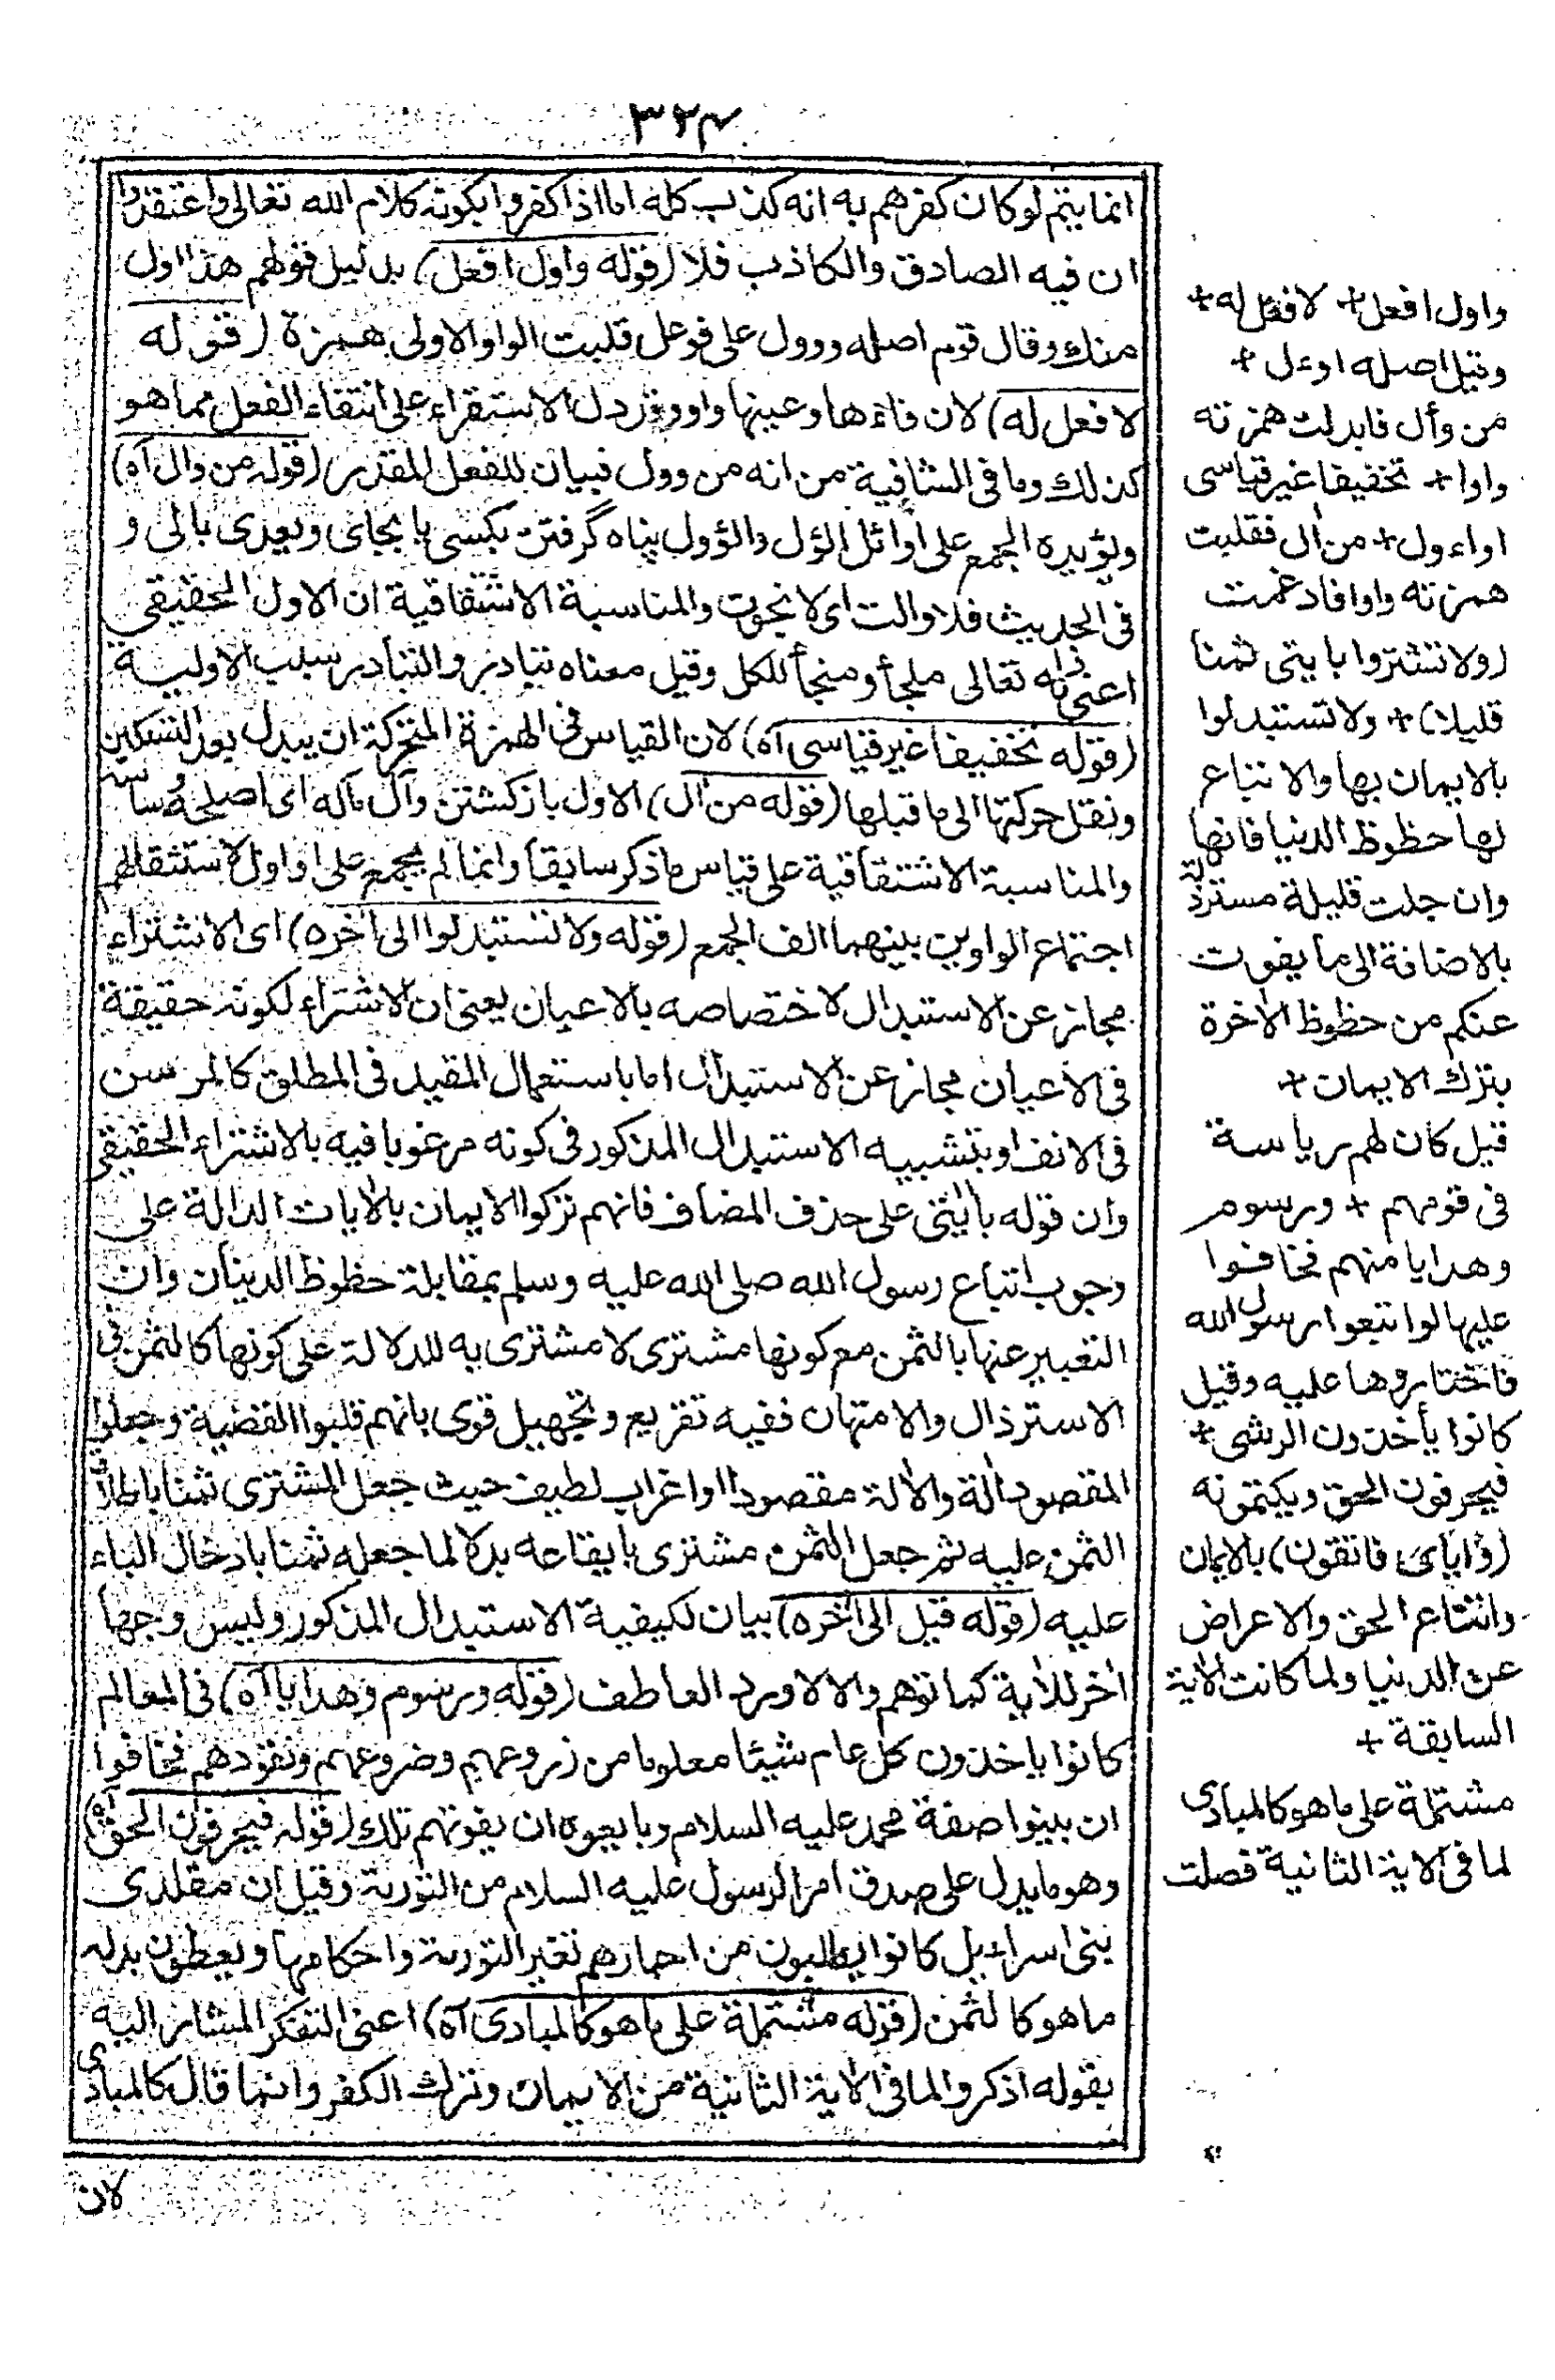 ٣٢٤
انما يتم لو كان كفرهم به انه كذب كله اما اذا كفروا بكونه كلام الله تعالى واعتقدوا
ان فيه الصادق والكاذب فلا (قوله واول افعل) بدليل قولهم هذا اول
منك وقال قوم اصله وول على فوعل قلبت الواو الاولى همزة (قوله
لا فعل له) لان فاءها وعينها واو وقد دل الاستقراء على انتفاء الفعل مما هو
كذلك وما فى الشافية من انه من وول فبيان للفعل المقدر (قوله من وال آه)
ويؤيده الجمع على اوائل الؤل والؤول پناه گرفتن بكسى يا بجاى ويعدى بالى و
فى الحديث فلا والت اى لا نجوت والمناسبة الاشتقاقية ان الاول الحقيقى
اعنى ذاته تعالى ملجأ ومنجأ للكل وقيل معناه تبادر والتبادر سبب الاولية
(قوله تخفيفا غير قياسى آه) لان القياس فى الهمزة المتحركة ان يبدل بعد التسكين
ونقل حركتها الى ما قبلها (قوله من أل) الاول باز گشتن وآل ماله اى اصلحه وساسه
والمناسبة الاشتقاقية على قياس ما ذكر سابقا وانما لم يجمع على اواول لاستثقالهم
اجتماع الواوين بينهما الف الجمع (قوله ولا تستبدلوا الى آخره) اى الاشتراء
مجاز عن الاستبدال لاختصاصه بالاعيان يعنى ان الاشتراء لكونه حقيقة
فى الاعيان مجاز عن الاستبدال اما باستعمال المقيد فى المطلق كالمرسن
فى الانف او بتشبيه الاستبدال المذكور فى كونه مرغوبا فيه بالاشتراء الحقيقى
وان قوله بآيتى على حذف المضاف فانهم تركوا الايمان بالآيات الدالة على
وجوب اتباع رسول الله صلى الله عليه وسلم بمقابلة حظوظ الدنيا وان
التعبير عنها بالثمن مع كونها مشترى لا مشترى به للدلالة على كونها كالثمن فى
الاسترذال والامتهان ففيه تقريع وتجهيل قوى بانهم قلبوا القضية وجعلوا
المقصود آلة والآلة مقصودا واغراب لطيف حيث جعل المشترى ثمنا باطلاق
الثمن عليه ثم جعل الثمن مشترى بايقاعه بدلا لما جعله ثمنا بادخال الباء
عليه (قوله قيل الى آخره) بيان لكيفية الاستبدال المذكور وليس وجها
آخر للآية كما توهم والا لاورد العاطف (قوله ورسوم وهدايا آه) فى المعالم
كانوا ياخذون كل عام شيئا معلوما من زروعهم وضروعهم ونقودهم فخافوا
ان بينوا صفة محمد عليه السلام وبايعوه ان يفوتهم تلك (قوله فيحرفون الحق آه)
وهو ما يدل على صدق امر الرسول عليه السلام من التورية وقيل ان مقلدى
بنى اسراءيل كانوا يطلبون من احبارهم تغير التورية واحكامها ويعطون بدله
ما هو كالثمن (قوله مشتملة على ما هو كالمبادى آه) اعنى التفكر المشار اليه
بقوله اذكروا لما فى الآية الثانية من الايمان وترك الكفر وانما قال كالمبادى
لان
واول افعل + لا فعل له +
وقيل اصله اوءل +
من وأل فابدلت همزته
واوا + تخفيفا غير قياسى
او اءول + من أل فقلبت
همزته واوا فادغمت
(ولا تشتروا بايتى ثمنا
قليلا) + ولا تستبدلوا
بالايمان بها والاتباع
لها حظوظ الدنيا فانها
وان جلت قليلة مسترذلة
بالاضافة الى ما يفوت
عنكم من حظوظ الآخرة
بترك الايمان +
قيل كان لهم رياسة
فى قومهم + ورسوم
وهدايا منهم فخافوا
عليها لو اتبعوا رسول الله
فاختاروها عليه وقيل
كانوا يأخذون الرشى +
فيحرفون الحق ويكتمونه
(واياى فاتقون) بالايمان
واتباع الحق والاعراض
عن الدنيا ولما كانت الآية
السابقة +
مشتملة على ما هو كالمبادى
لما فى الاية الثانية فصلت